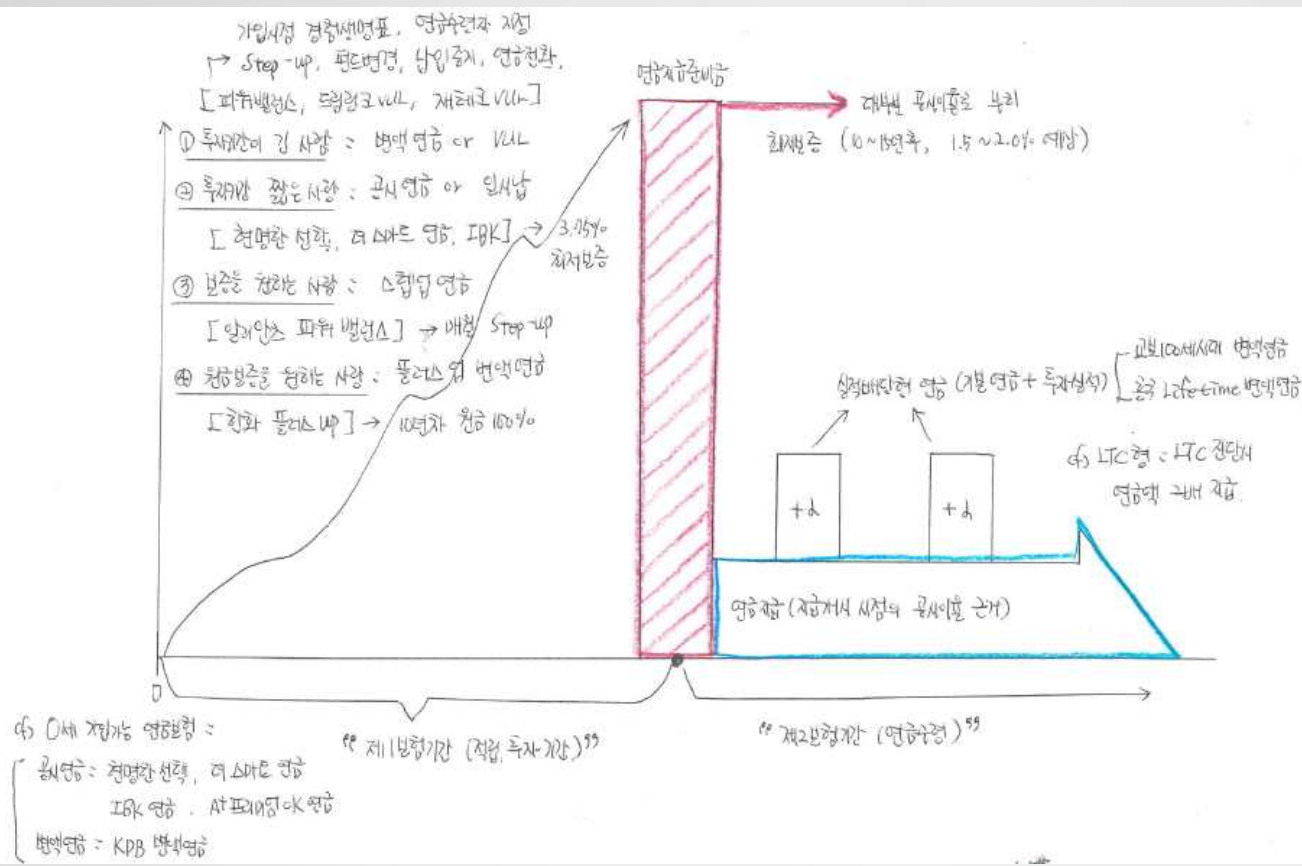 가입시점 경험생명표, 연금수령자 지정
→ Step-up, 펀드변경, 납입중지, 연금전환,
[파워밸런스, 드림링크VUL, 재테크VUL]
① 투자기간이 긴 사람 : 변액연금 or VUL
② 투자기간 짧은 사람 : 공시연금 or 일시납
[현명한 선택, 더 스마트 연금, IBK] → 3.75%
최저보증
③ 보증을 원하는 사람 : 스텝업 연금
[알리안츠 파워 밸런스] → 매월 Step-up
④ 원금보증을 원하는 사람 : 플러스 업 변액연금
[한화 플러스up] → 10년차 원금 100%
연금지급준비금
대부분 공시이율로 부리
최저보증 (10~15년후, 1.5~2.0% 예상)
실적배당형 연금 (기본 연금 + 투자실적)
교보100세시대 변액연금
흥국 Lifetime 변액연금
cf) LTC형 : LTC 진단시
연금액 2배 지급.
+α
+α
연금지급 (지급개시 시점의 공시이율 근거)
0
"제1보험기간 (적립, 투자기간)"
"제2보험기간 (연금수령)"
cf) 0세 가입가능 연금보험 :
공시연금 : 현명한 선택, 더 스마트 연금
IBK 연금. A+프리미엄OK연금
변액연금 : KDB 변액연금